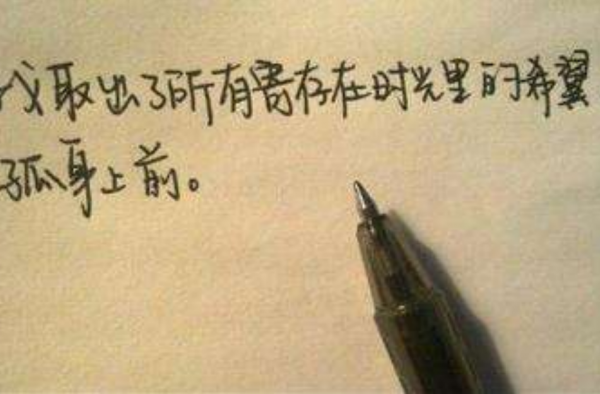 我取出了所有寄存在时光里的希翼
孤身上前。